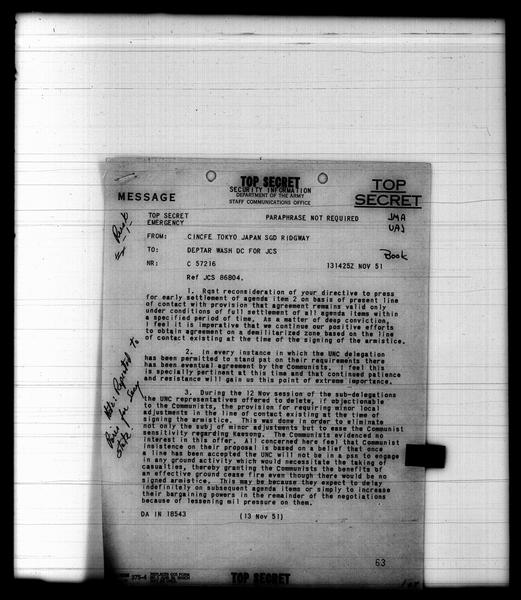 TOP SECRET
SECURITY INFORMATION
DEPARTMENT OF THE ARMY
STAFF COMMUNICATIONS OFFICE
MESSAGE
TOP
SECRET
TOP SECRET
EMERGENCY
PARAPHRASE NOT REQUIRED
JMA
UAJ
FROM: CINCFE TOKYO JAPAN SGD RIDGWAY
TO: DEPTAR WASH DC FOR JCS
Book
NR: C 57216 131425Z NOV 51
Ref JCS 86804.
1. Rqst reconsideration of your directive to press
for early settlement of agenda item 2 on basis of present line
of contact with provision that agreement remains valid only
under conditions of full settlement of all agenda items within
a specified period of time. As a matter of deep conviction,
I feel it is imperative that we continue our positive efforts
to obtain agreement on a demilitarized zone based on the line
of contact existing at the time of the signing of the armistice.
2. In every instance in which the UNC delegation
has been permitted to stand pat on their requirements there
has been eventual agreement by the Communists. I feel this
is especially pertinent at this time and that continued patience
and resistance will gain us this point of extreme importance.
3. During the 12 Nov session of the sub-delegations
the UNC representatives offered to delete, if objectionable
to the Communists, the provision for requiring minor local
adjustments in the line of contact existing at the time of
signing the armistice. This was done in order to eliminate
not only the subj of minor adjustments but to ease the Communist
sensitivity regarding Kaesong. The Communists evidenced no
interest in this offer. All concerned here feel that Communist
insistence on their proposal is based on a belief that once
a line has been accepted the UNC will not be in a psn to engage
in any ground activity which would necessitate the taking of
casualties, thereby granting the Communists the benefits of
an effective ground cease fire even though there would be no
signed armistice. This may be because they expect to delay
indefinitely on subsequent agenda items or simply to increase
their bargaining powers in the remainder of the negotiations
because of lessening mil pressure on them.
DA IN 18543 (13 Nov 51)
63
375-4
TOP SECRET